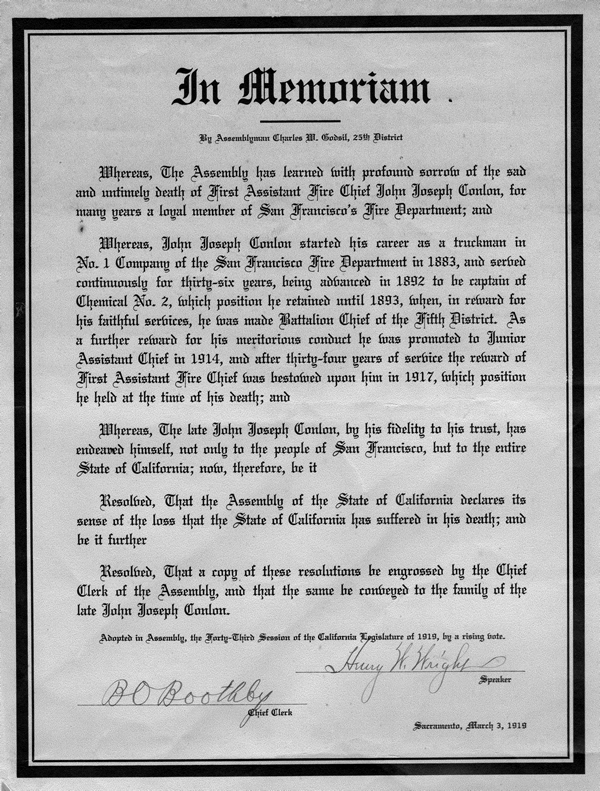 In Memoriam.
By Assemblyman Charles W. Godsil, 25th District
Whereas, The Assembly has learned with profound sorrow of the sad
and untimely death of First Assistant Fire Chief John Joseph Conlon, for
many years a loyal member of San Francisco's Fire Department; and
Whereas, John Joseph Conlon started his career as a truckman in
No. 1 Company of the San Francisco Fire Department in 1883, and served
continuously for thirty-six years, being advanced in 1892 to be captain of
Chemical No. 2, which position he retained until 1893, when, in reward for
his faithful services, he was made Battalion Chief of the Fifth District. As
a further reward for his meritorious conduct he was promoted to Junior
Assistant Chief in 1914, and after thirty-four years of service the reward of
First Assistant Fire Chief was bestowed upon him in 1917, which position
he held at the time of his death; and
Whereas, The late John Joseph Conlon, by his fidelity to his trust, has
endeared himself, not only to the people of San Francisco, but to the entire
State of California; now, therefore, be it
Resolved, That the Assembly of the State of California declares its
sense of the loss that the State of California has suffered in his death; and
be it further
Resolved, That a copy of these resolutions be engrossed by the Chief
Clerk of the Assembly, and that the same be conveyed to the family of the
late John Joseph Conlon.
Adopted in Assembly, the Forty-Third Session of the California Legislature of 1919, by a rising vote.
Henry W. Wright
Speaker
B O Boothby
Chief Clerk
Sacramento, March 3, 1919